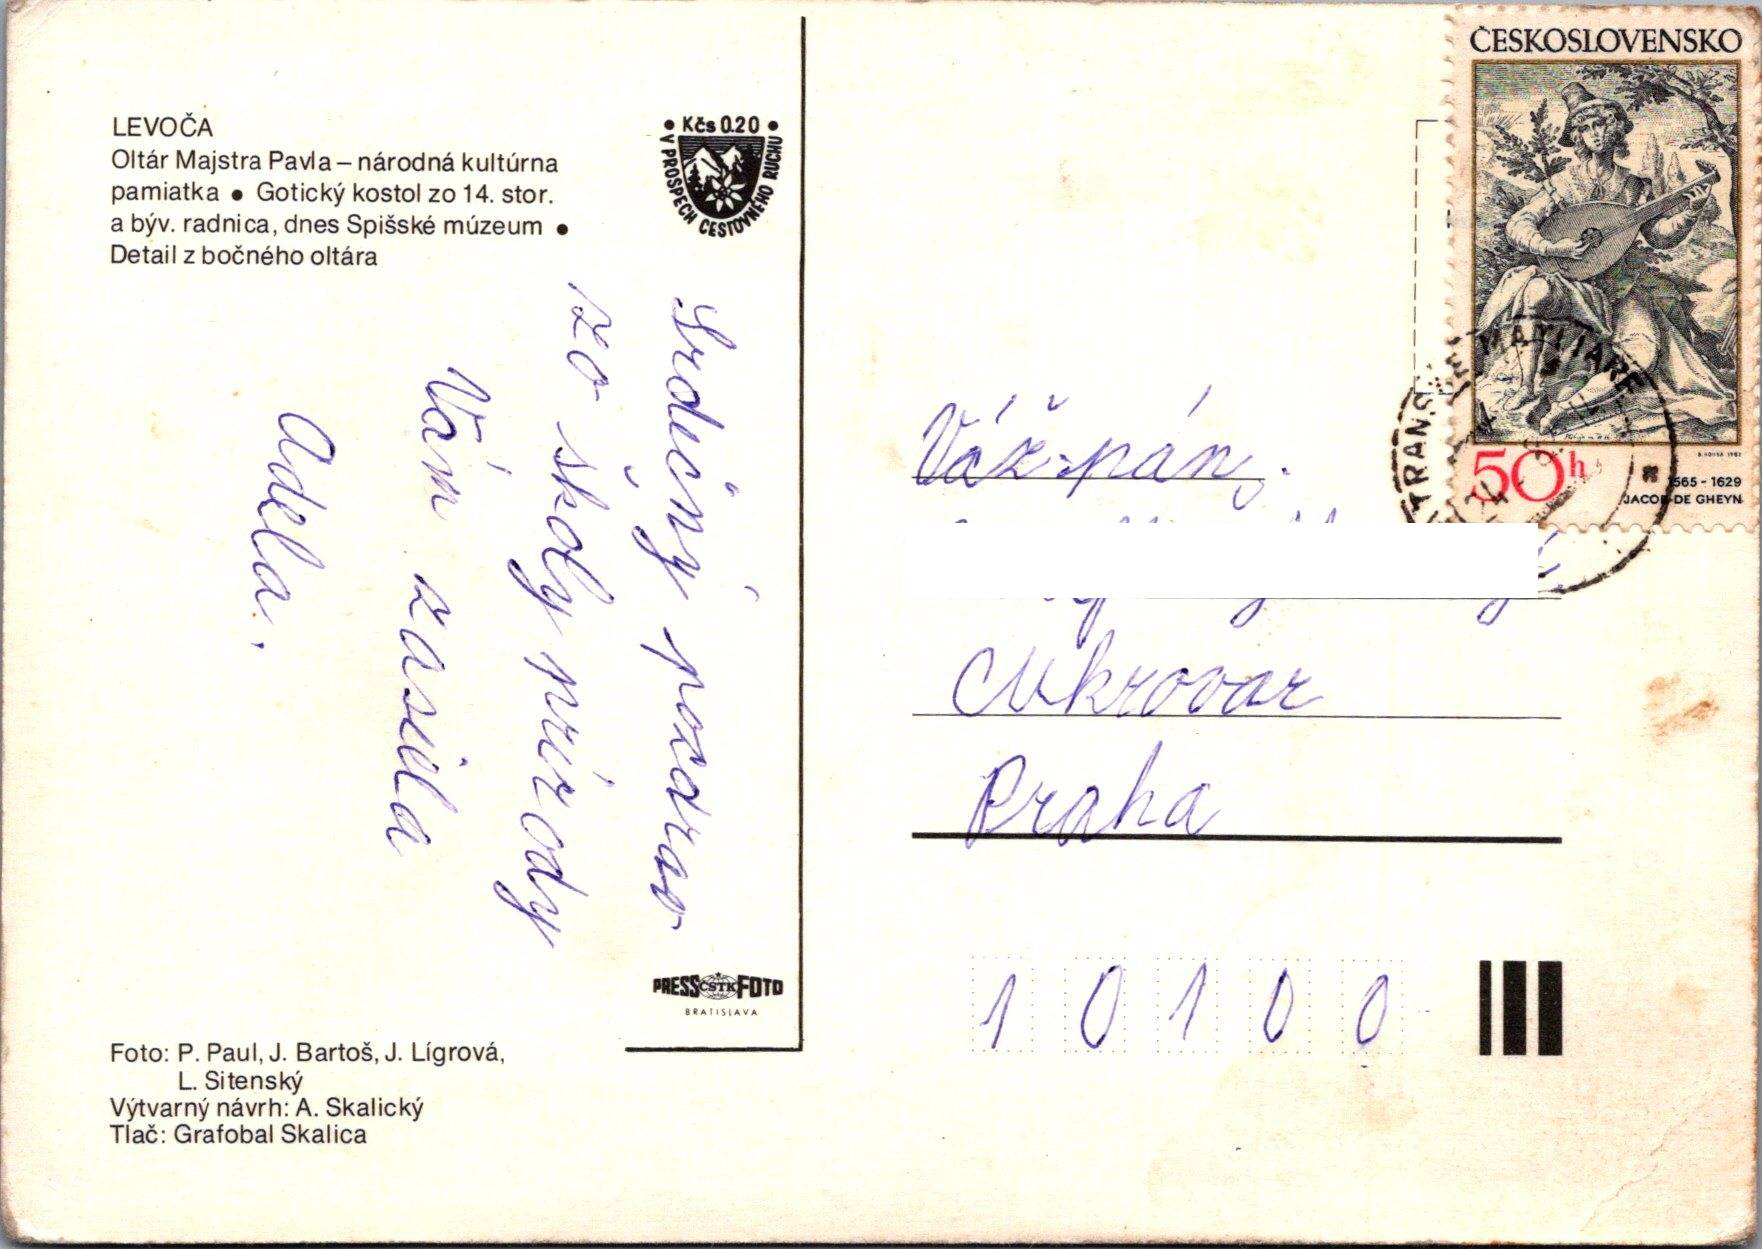 LEVOČA
Oltár Majstra Pavla – národná kultúrna
pamiatka ● Gotický kostol zo 14. stor.
a býv. radnica, dnes Spišské múzeum ●
Detail z bočného oltára
• Kčs 0.20 •
V PROSPECH CESTOVNÉHO RUCHU
Srdečný pozdrav
zo školy prírody
Vám zasiela
Adela.
PRESS ČSTK FOTO
BRATISLAVA
Foto: P. Paul, J. Bartoš, J. Lígrová,
L. Sitenský
Výtvarný návrh: A. Skalický
Tlač: Grafobal Skalica
ČESKOSLOVENSKO
50h
1565 - 1629
JACOB DE GHEYN
MATLIARE
Váž. pán,
Cukrovar
Praha
1 0 1 0 0